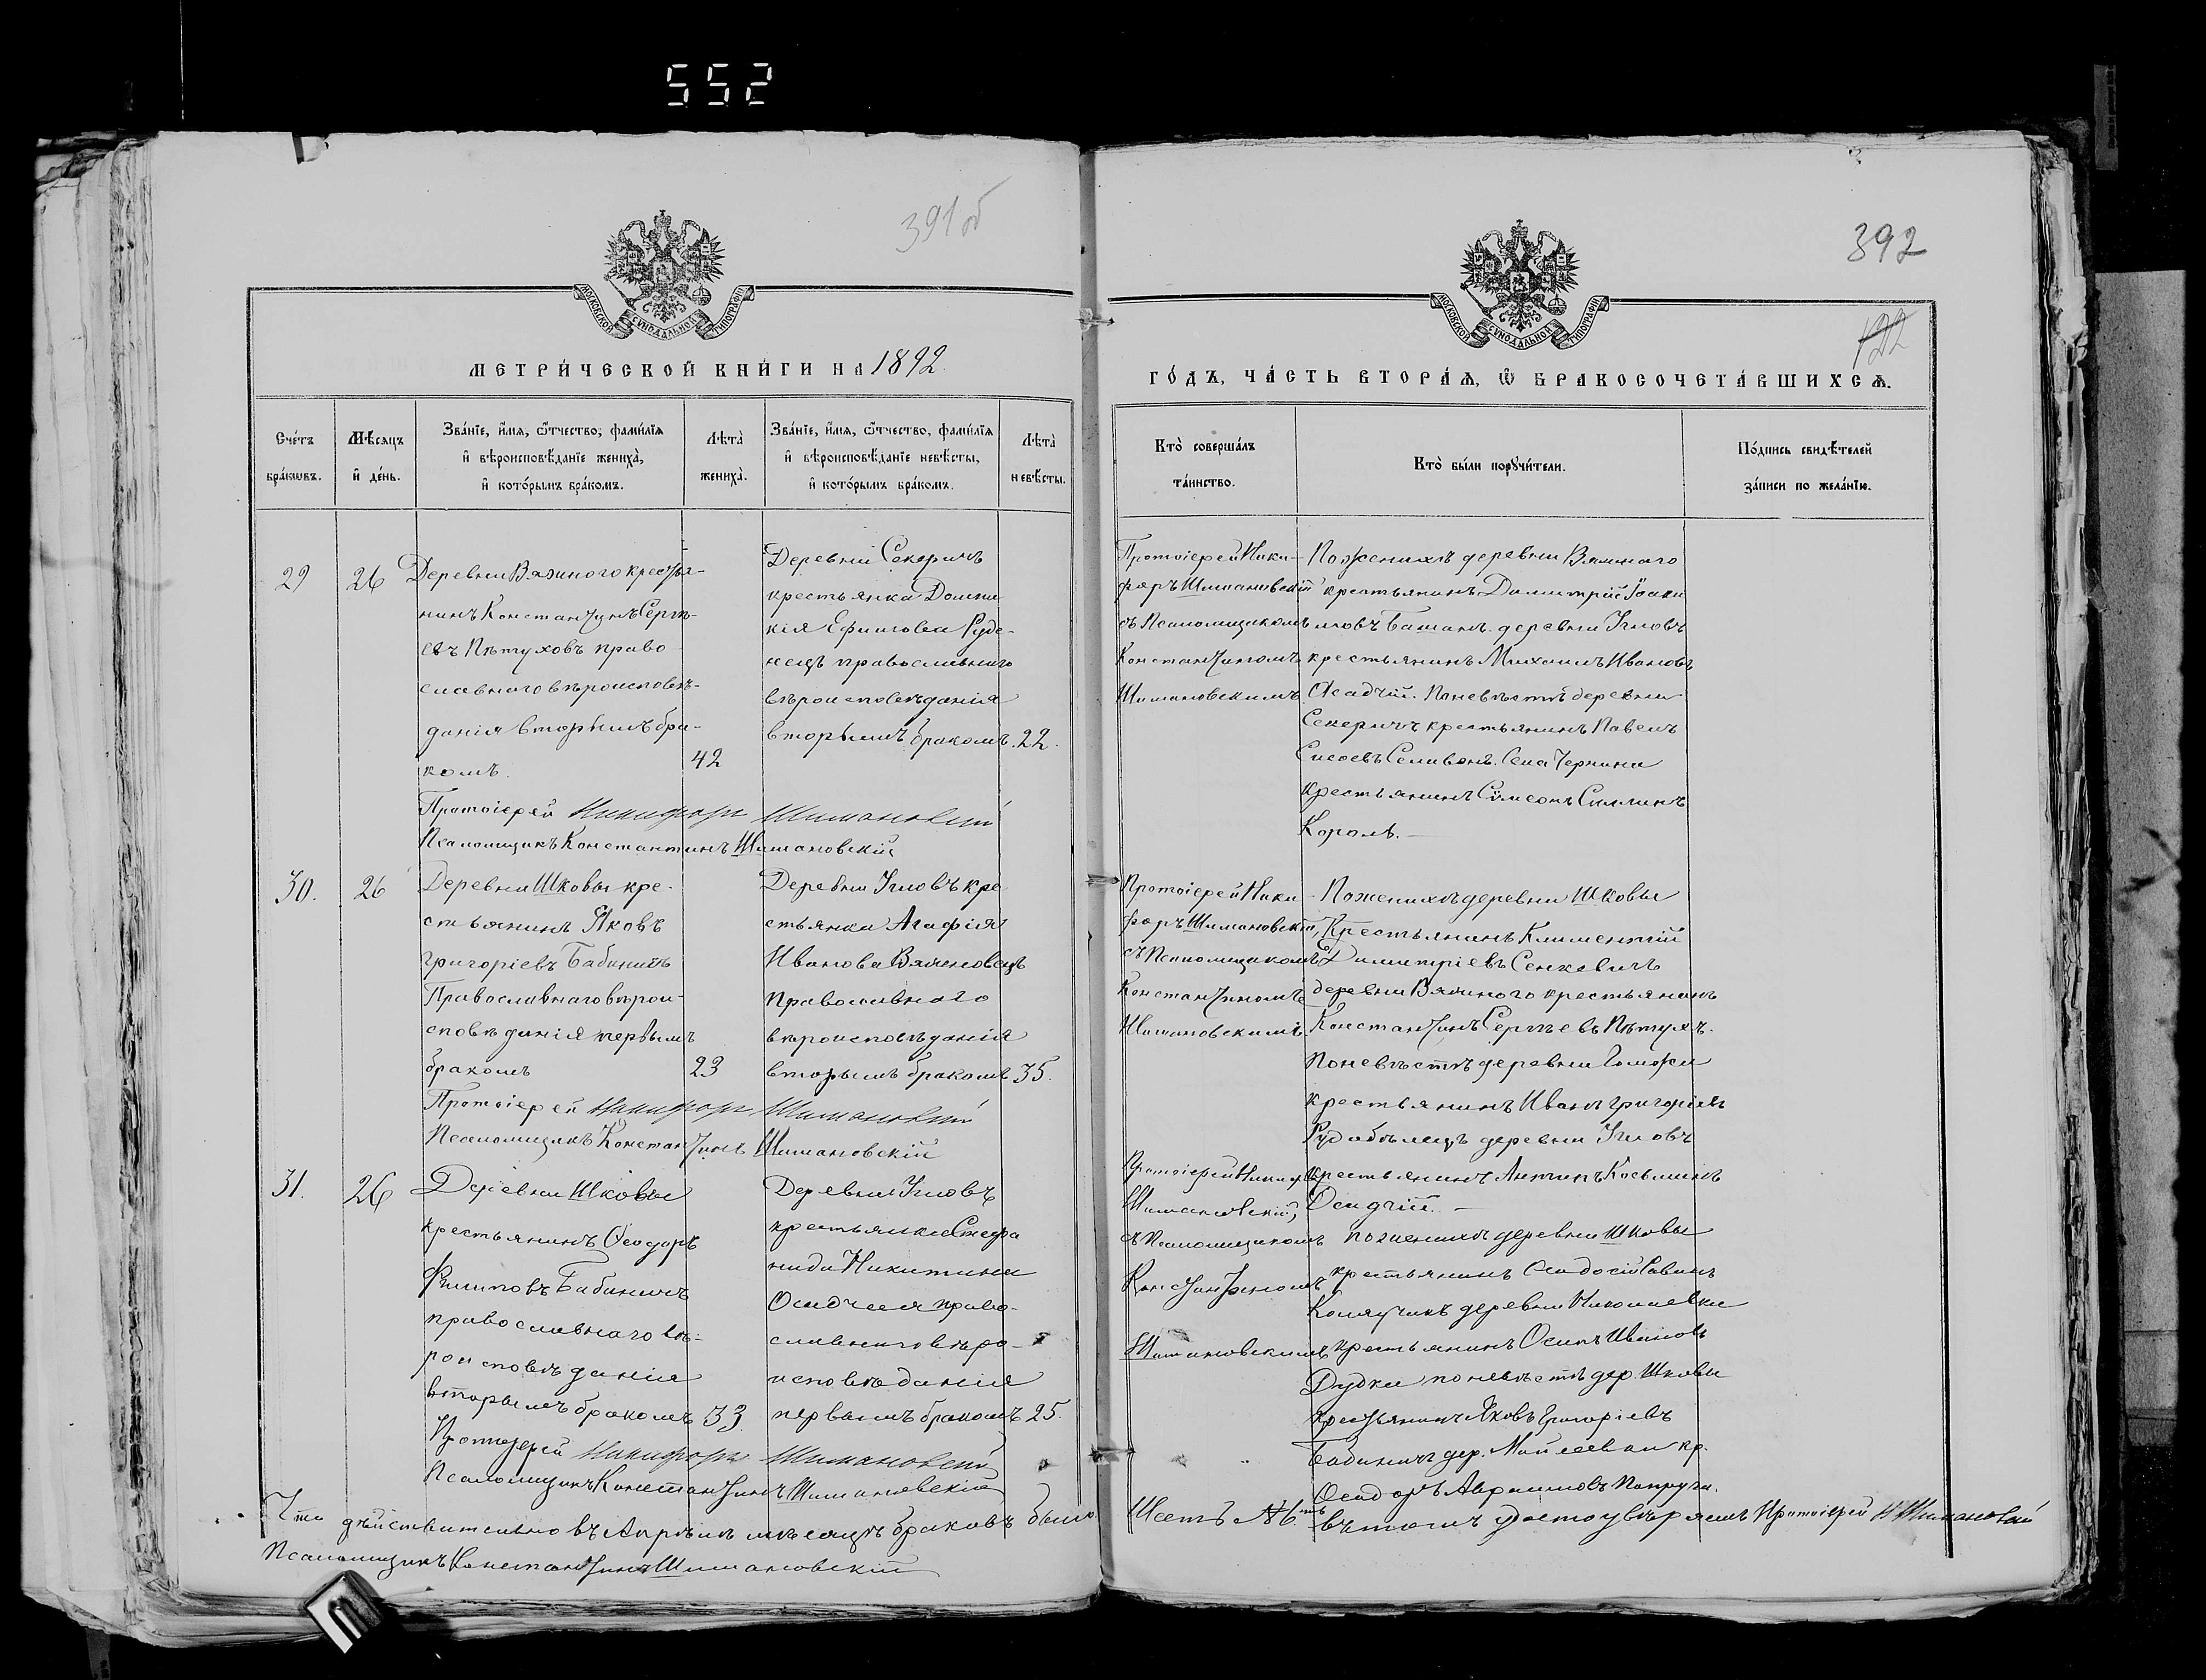 552
391 об
МОСКОВСКОЙ СѴНОДАЛЬНОЙ ТИПОГРАФІИ
МЕТРИ́ЧЕСКОЙ КНИ́ГИ НА 1892.
Сче́тъ бра́кѡвъ.
Мѣ́сяцъ и҆ де́нь.
Зва́нїе, и҆́мя, ѻ҆́тчество, фами́лїя
и҆ вѣроисповѣ́данїе жениха̀,
и҆ кото́рымъ бра́комъ.
Лѣта̀ жениха̀.
Зва́нїе, и҆́мя, ѻ҆́тчество, фами́лїя
и҆ вѣроисповѣ́данїе невѣ́сты,
и҆ кото́рымъ бра́комъ.
Лѣта̀ невѣ́сты.
29
26
Деревни Вязиного крестья-
нинъ Константинъ Сергѣ-
евъ Пѣтуховъ право
славнаго вѣроисповѣ-
данія вторымъ бра-
комъ.
42
Деревни Секеричъ
крестьянка Домни
кія Ефимова Рудо-
нецъ православнаго
вѣроисповѣданія
вторымъ бракомъ.
22.
Протоіерей Никифоръ Шимановскій
Псаломщикъ Константинъ Шимановскій
30.
26
Деревни Шковы кре-
стьянинъ Яковъ
Григоріевъ Бабиничъ
Православнаго вѣрои-
сповѣданія первымъ
бракомъ
23
Деревни Угловъ кре
стьянка Агафія
Иванова
Православнаго
вѣроисповѣданія
вторымъ бракомъ
35.
Протоіерей Никифоръ Шимановскій
Псаломщикъ Константинъ Шимановскій
31.
26
Деревни Шковы
крестьянинъ Ѳеодоръ
Филиповъ Бабиничъ
православнаго вѣ-
роисповѣданія
вторымъ бракомъ
33
Деревни Угловъ
крестьянка Стефа
нида Никитина
Осадчая право-
славнаго вѣро-
исповѣданія
первымъ бракомъ
25.
Протоіерей Никифоръ Шимановскій
Псаломщикъ Константинъ Шимановскій
Что дѣйствительно въ Апрѣлѣ мѣсяцѣ браковъ было
Псаломщикъ Константинъ Шимановскій
392
122
МОСКОВСКОЙ СѴНОДАЛЬНОЙ ТИПОГРАФІИ
ГО́ДЪ, ЧА́СТЬ ВТОРА́Ѧ, Ѽ БРАКОСОЧЕТА́ВШИХСѦ.
Кто̀ соверша́лъ
та́инство.
Кто̀ бы́ли порꙋчи́тели.
По́дпись свидѣ́телей
за́писи по жела́нїю.
Протоіерей Ники-
форъ Шимановскій
съ Псаломщикомъ
Константиномъ
Шимановскимъ
По женихѣ деревни Вязиного
крестьянинъ Димитрій Іоаки
мовъ Башанъ. деревни Углов
крестьянинъ Михаилъ Ивановъ
Осадчій. По невѣстѣ деревни
Секеричъ крестьянинъ Павелъ
Сысоевъ Селивонъ. Села Чернина
крестьянинъ Сѵмеонъ Силинъ
Король.
Протоіерей Ники
форъ Шимановскій,
съ Псаломщикомъ
Константиномъ
Шимановскимъ
По женихѣ деревни Шковы
Крестьянинъ Климентій
Димитріевъ Сенкевичъ
деревни Вязиного крестьянинъ
Константинъ Сергѣевъ Пѣтухъ.
По невѣстѣ деревни
крестьянинъ Иванъ Григоріевъ
Рудобѣлецъ деревни Угловъ
крестьянинъ Антипъ Косьминъ
Осадчій.
Протоіерей Никифоръ
Шимановскій,
съ Псаломщикомъ
Константиномъ
Шимановскимъ
По женихѣ деревни Шковы
крестьянинъ Ѳеодосій Савинъ
деревни Николаевки
крестьянинъ Осипъ Ивановъ
Дудка по невѣстѣ дер. Шковы
крестьянинъ Яковъ Григоріевъ
Бабиничъ дер. кр.
Ѳеодоръ Авраамовъ Папруга.
Шесть №6ть въ томъ удостовѣряемъ Протоіерей Н Шимановскій